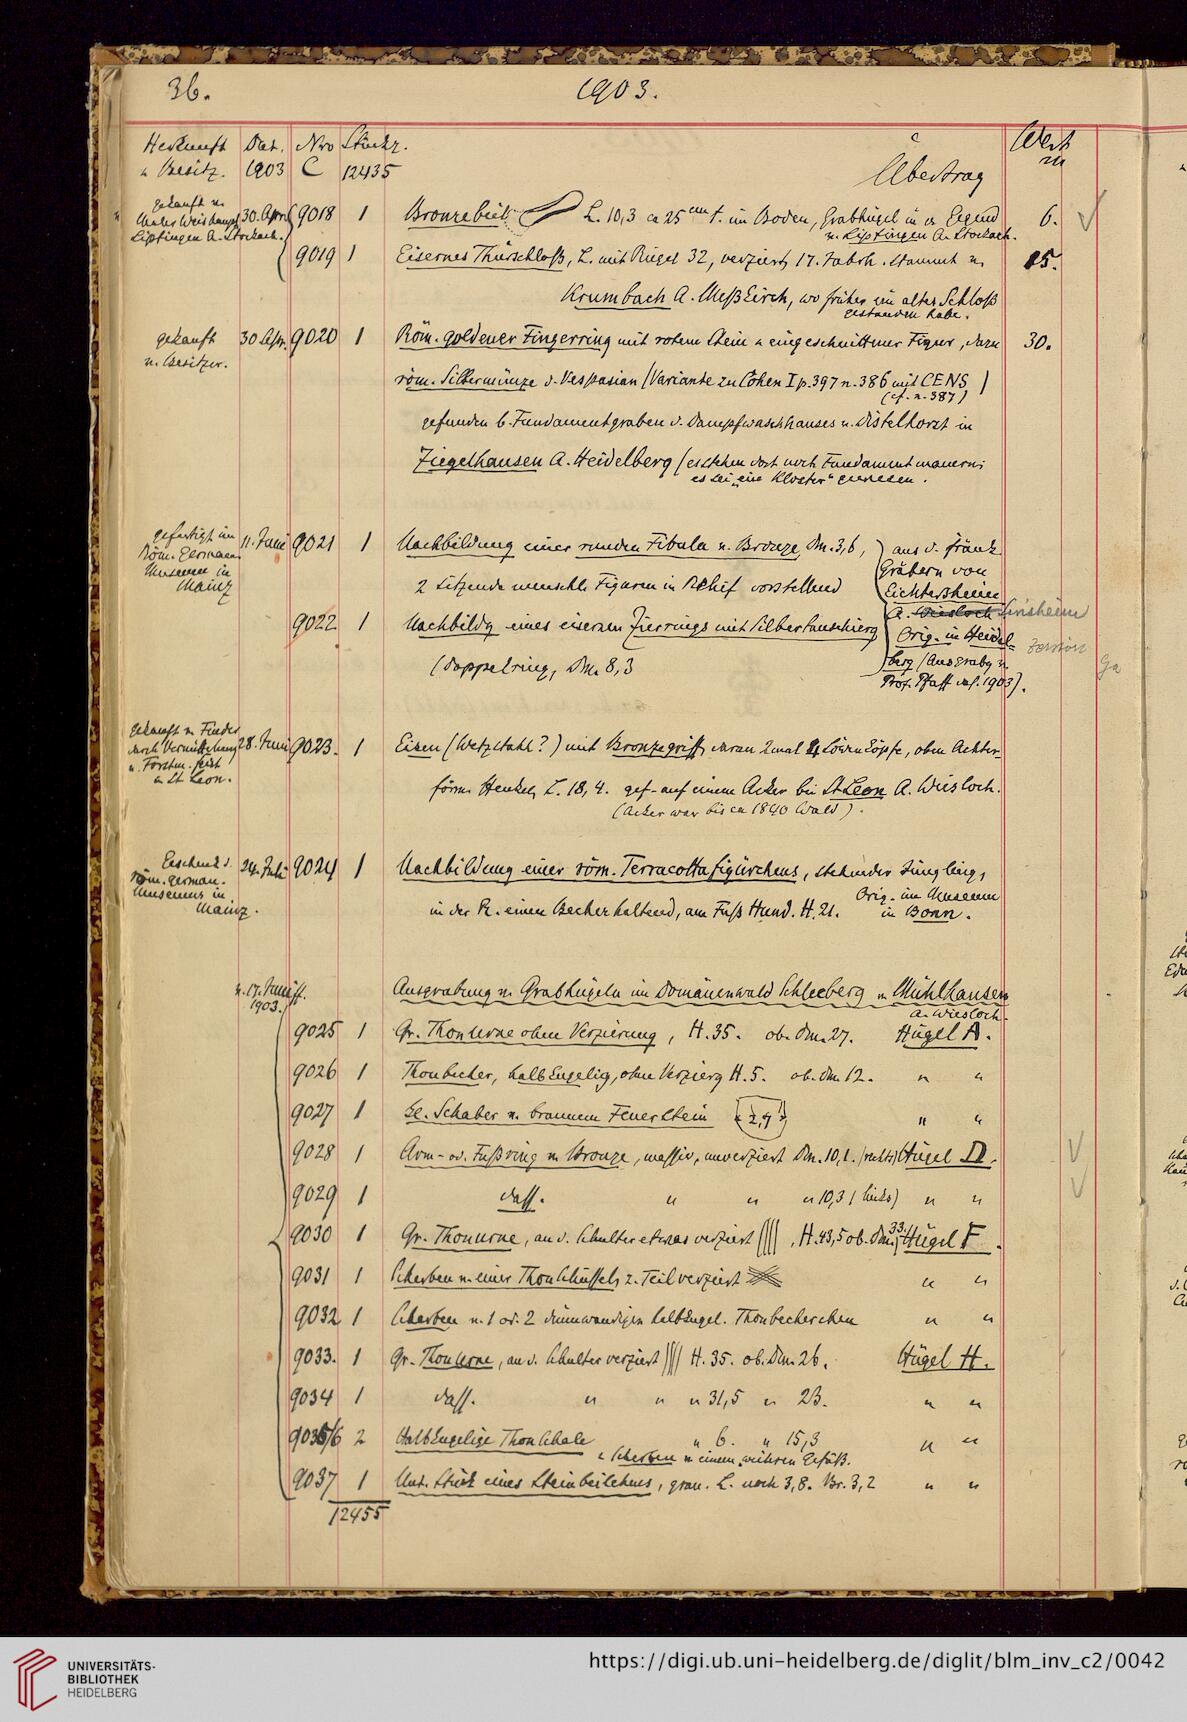 36.
1903.
Herkunft Dat. Nro Stückz. Wert
u. Besitz. 1903 C 12435 Übertrag M
gekauft v.
30. Apr. 9018 1 Bronzebeil L. 10,3 ca 25 cm t. im Boden, Grabhügel in d. Gegend 6.
Liptingen A. Stockach. v. Liptingen A. Stockach.
9019 1 Eisernes Thürschloß, L. mit Riegel 32, verziert, 17. Jahrh. stammt v. 15.
Krumbach A. Meßkirch, wo früher ein altes Schloß
gestanden habe.
gekauft 30 Apr. 9020 1 Röm. goldener Fingerring mit rotem Stein u. eingeschnittner Figur, dazu 30.
v. Besitzer.
röm. Silbermünze v. Vespasian (Variante zu Cohen I p. 397 n. 386 mit CENS)
(cf. n. 387)
gefunden b. Fundamentgraben d. Dampfwaschhauses v. Distelhorst in
Ziegelhausen A. Heidelberg (es stehen dort noch Fundamentmauern;
es sei „ein Kloster“ gewesen.
gefertigt im 11. Juni 9021 1 Nachbildung einer runden Fibula v. Bronze, Dm. 3,6, aus d. fränk.
Röm. German. Gräbern von
Museum in 2 sitzende menschl. Figuren in Relief vorstellend Eichtersheim
Mainz A. Wiesloch Sinsheim
9022. 1 Nachbildg eines eisernen Zierrings mit Silbertauschierg Orig. in Heidel-
(Doppelring, Dm. 8,3 berg (Ausgrabg v.
Prof. Pfaff 1903).
gekauft v. Finder
durch Vermittelung 28. Juni 9023. 1 Eisen (Wetzstahl?) mit Bronzegriff, daran 2 mal 4 Löwenköpfe, oben Achter-
v. Forstm.
in St Leon. förm. Henkel, L. 18,4. gef. auf einem Acker bei St Leon A. Wiesloch.
(Acker war bis ca 1840 Wald).
Geschenk d. 24. Juli 9024 1 Nachbildung einer röm. Terracottafigürchens, stehender Jüngling,
röm. german.
Museums in Orig. im Museum
Mainz. in der R. einen Becher haltend, am Fuß Hund. H. 21. in Bonn.
v. 17. Juni ff. Ausgrabung v. Grabhügeln im Domänenwald Schleeberg v. Mühlhausen
1903. A. Wiesloch.
9025 1 Gr. Thonurne ohne Verzierung, H. 35. ob. Dm. 27. Hügel A.
9026 1 Thonbecher, halbkugelig, ohne Verzierg H. 5. ob. Dm 12. " "
9027 1 Kl. Schaber v. braunem Feuerstein 2,9 " "
9028 1 Arm- od. Fußring v. Bronze, massiv, unverziert Dm. 10,1. (rechts) Hügel D.
9029 1 dass. " " " 10,3 (links) " "
9030 1 Gr. Thonurne, an d. Schulter etwas verziert, H. 43,5 ob. Dm. 33. Hügel F.
9031 1 Scherben v. einer Thonschüssel, z. Teil verziert " "
9032 1 Scherben v. 1 od. 2 dünnwandigen halbkugel. Thonbecherchen " "
9033. 1 Gr. Thonurne, an d. Schulter verziert H. 35. ob. Dm. 26. Hügel H.
9034 1 dass. " " " 31,5 " 23. " "
9035/6 2 Halbkugelige Thonschale " 6. " 15,3 " "
u. Scherben v. einem weiteren Gefäß.
9037 1 Unt. Stück eines Steinbeilchens, grau. L. noch 3,8. Br. 3,2 " "
12455
UNIVERSITÄTS-
BIBLIOTHEK
HEIDELBERG
https://digi.ub.uni-heidelberg.de/diglit/blm_inv_c2/0042